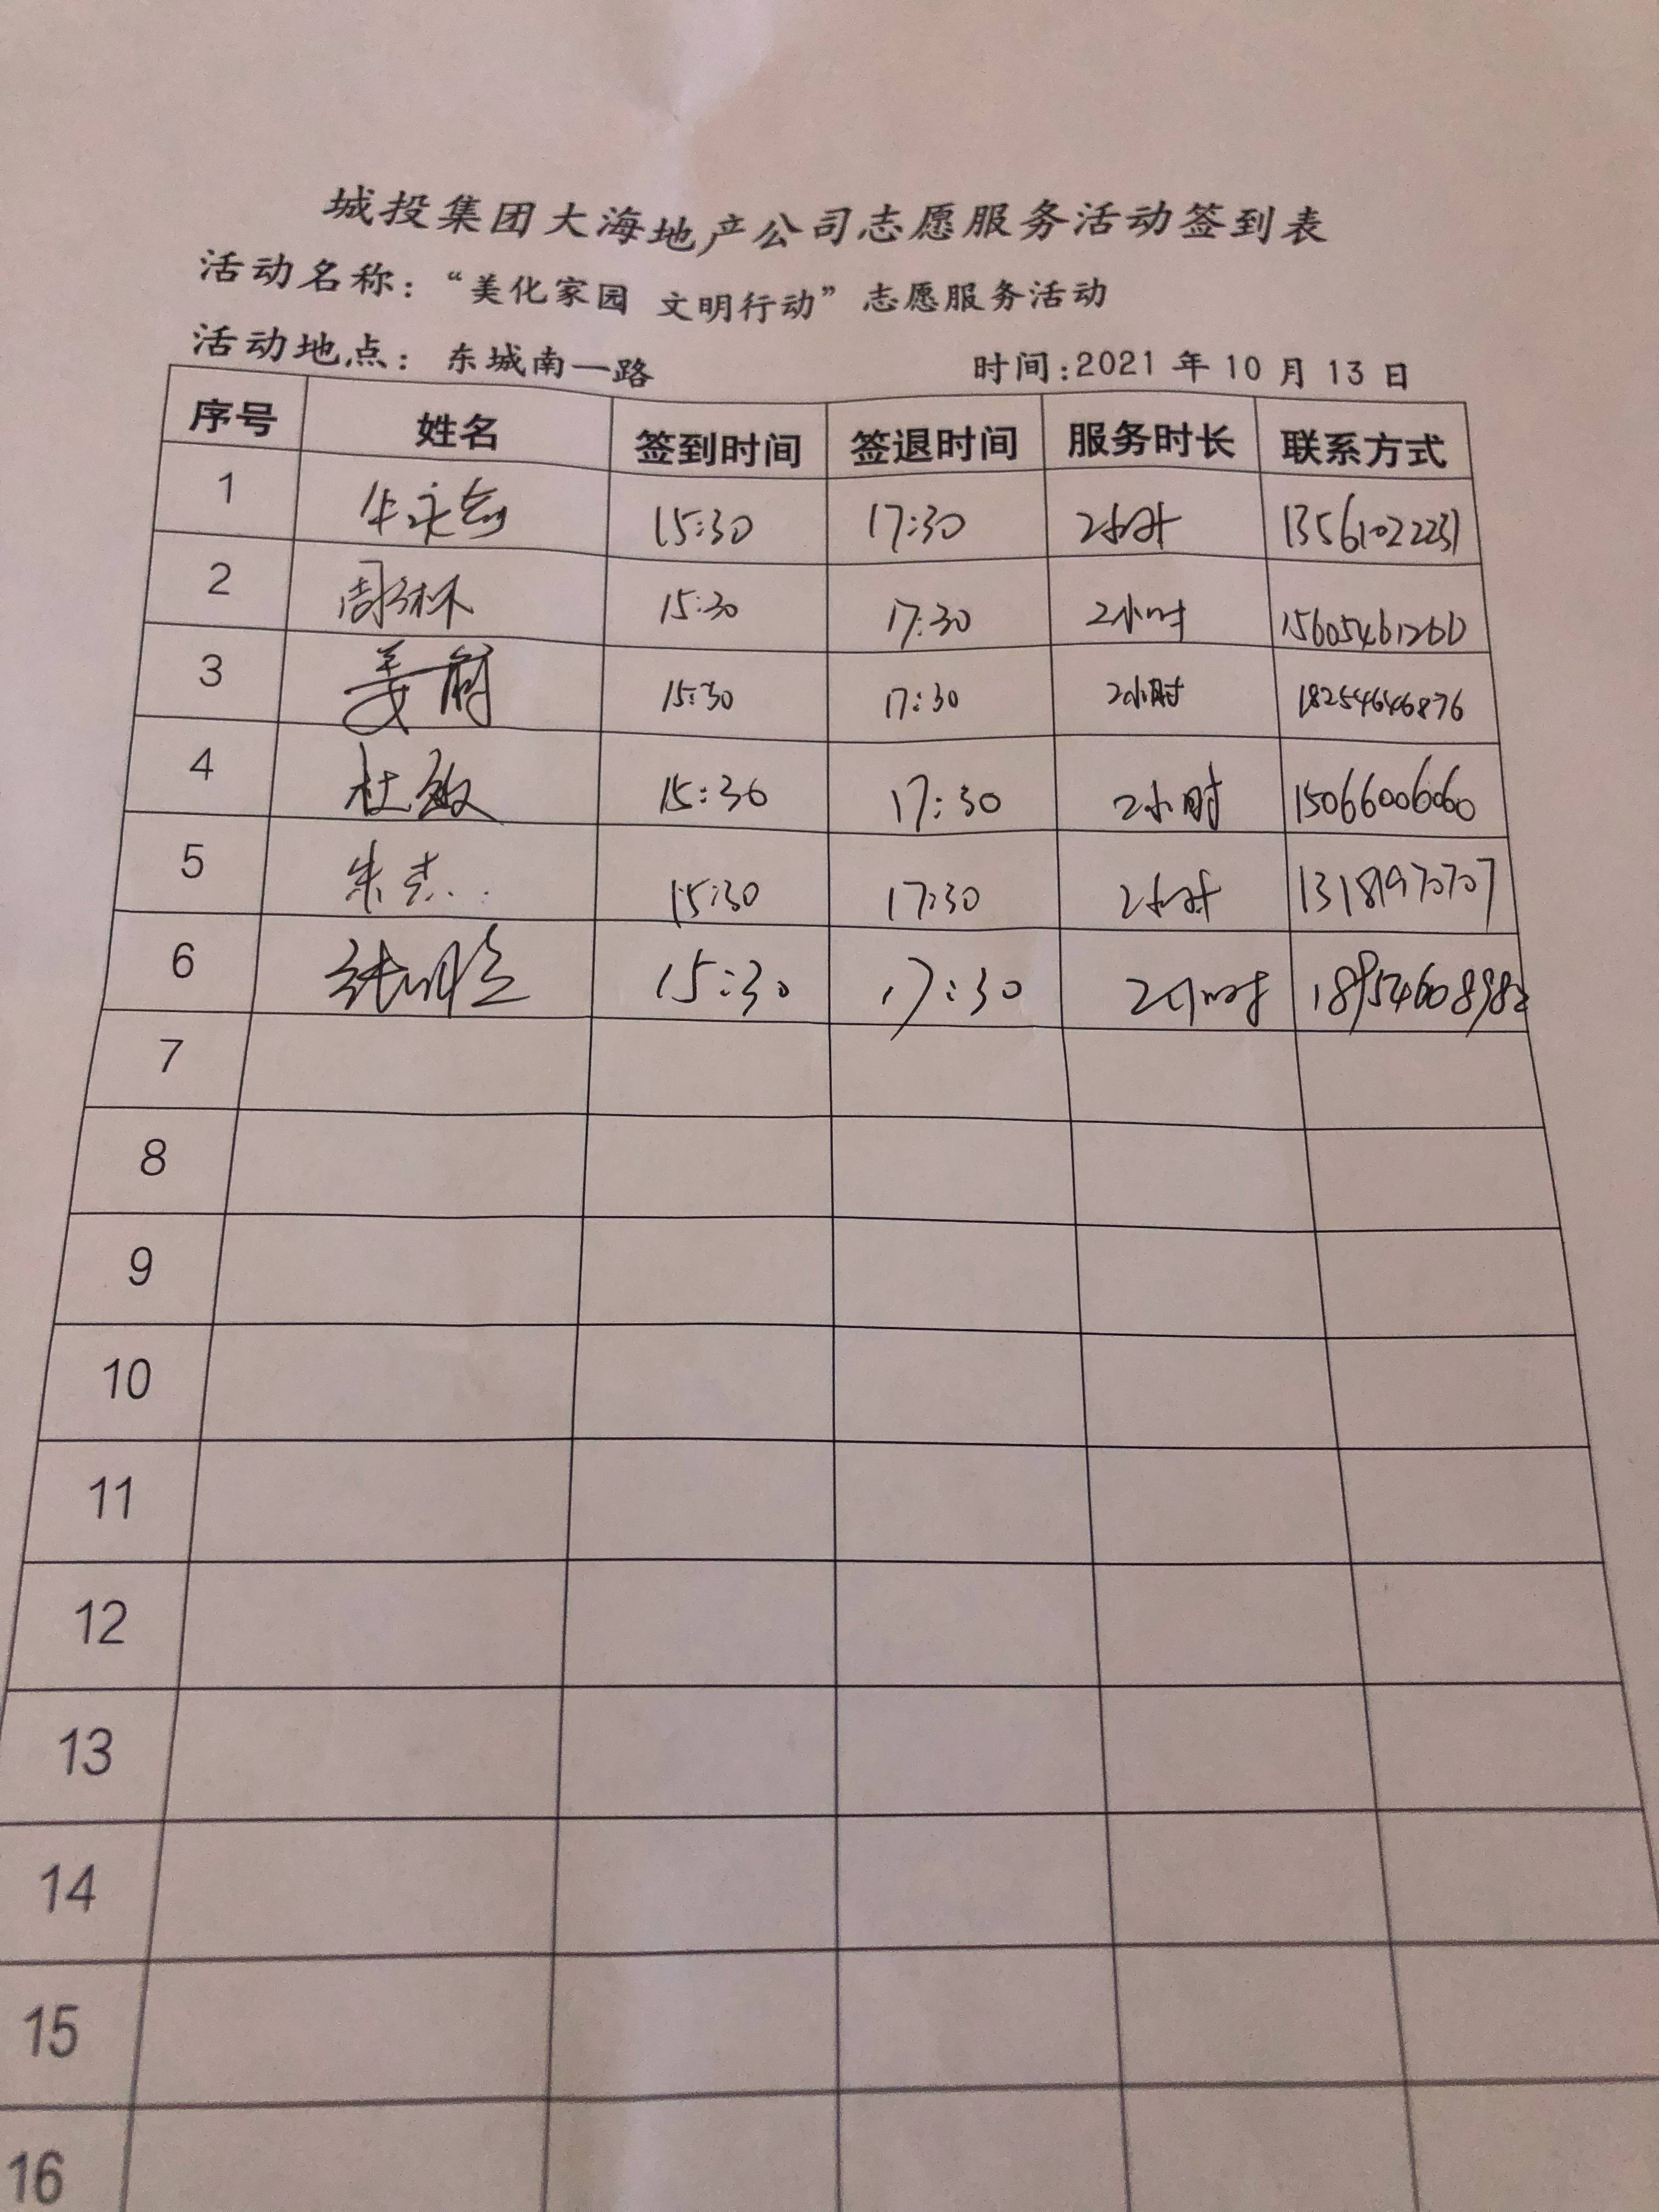 城投集团大海地产公司志愿服务活动签到表
活动名称：“美化家园 文明行动”志愿服务活动
活动地点：东城南一路 时间:2021年10月13日
序号 姓名 签到时间 签退时间 服务时长 联系方式
1 15:30 17:30 2小时 13561022231
2 15:30 17:30 2小时
3 姜 15:30 17:30 2小时 18254646876
4 杜敏 15:30 17:30 2小时 15066006060
5 朱杰 15:30 17:30 2小时
6 张 15:30 17:30 2小时 18954608982
7
8
9
10
11
12
13
14
15
16